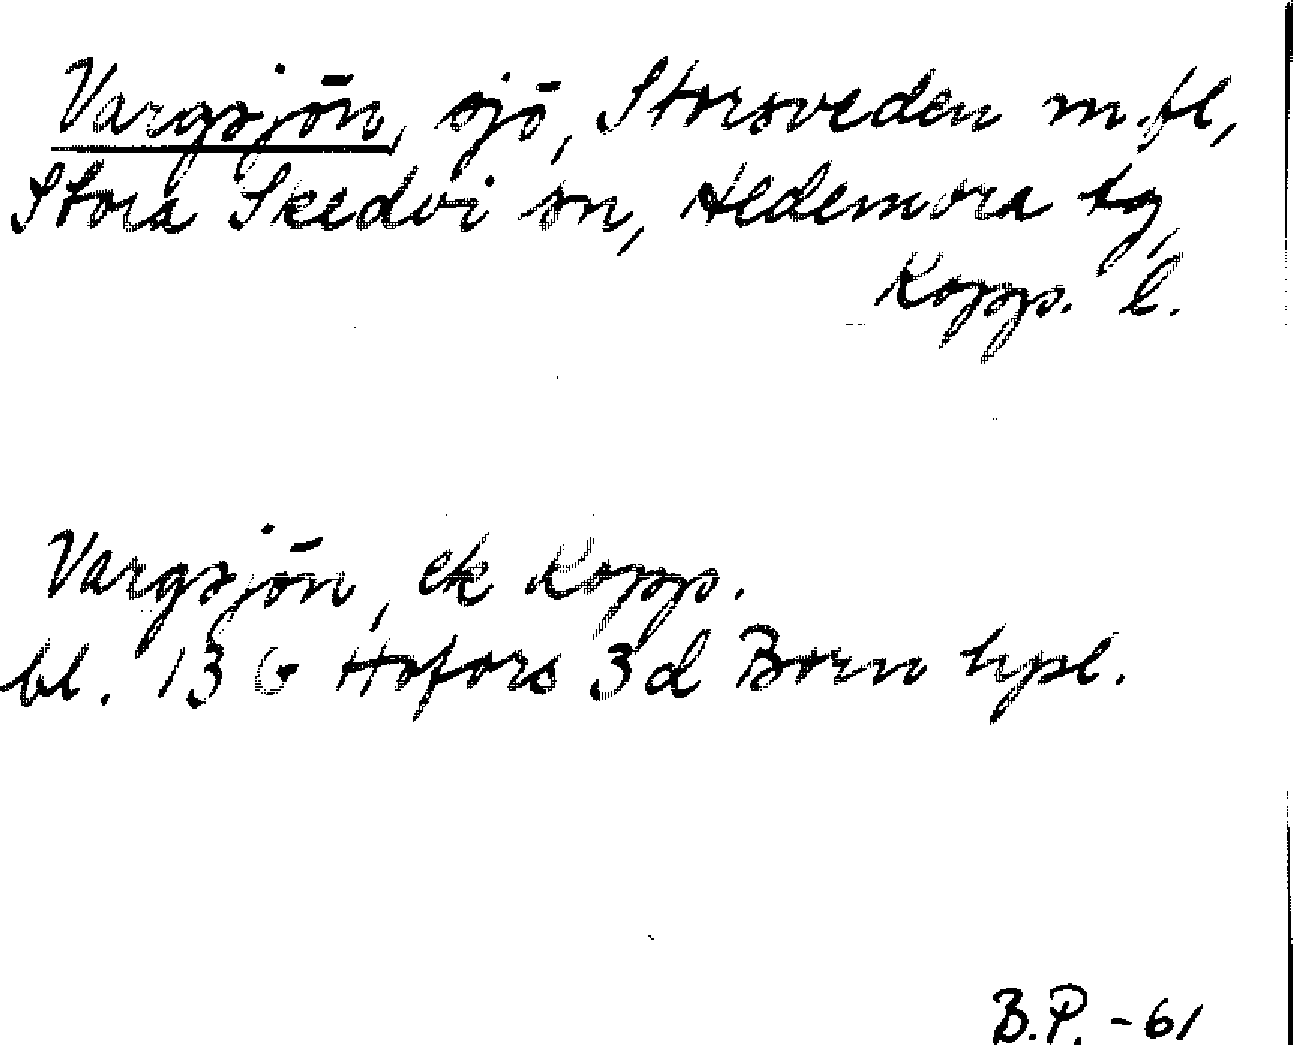 Vargsjön, sjö, Storsveden m.fl,
Stora Skedvi sn, Hedemora tg,
Kopp. l.
Vargsjön, ek Kopp.
bl. 13 G Hofors 3 d Born hpl.
B.P. -61